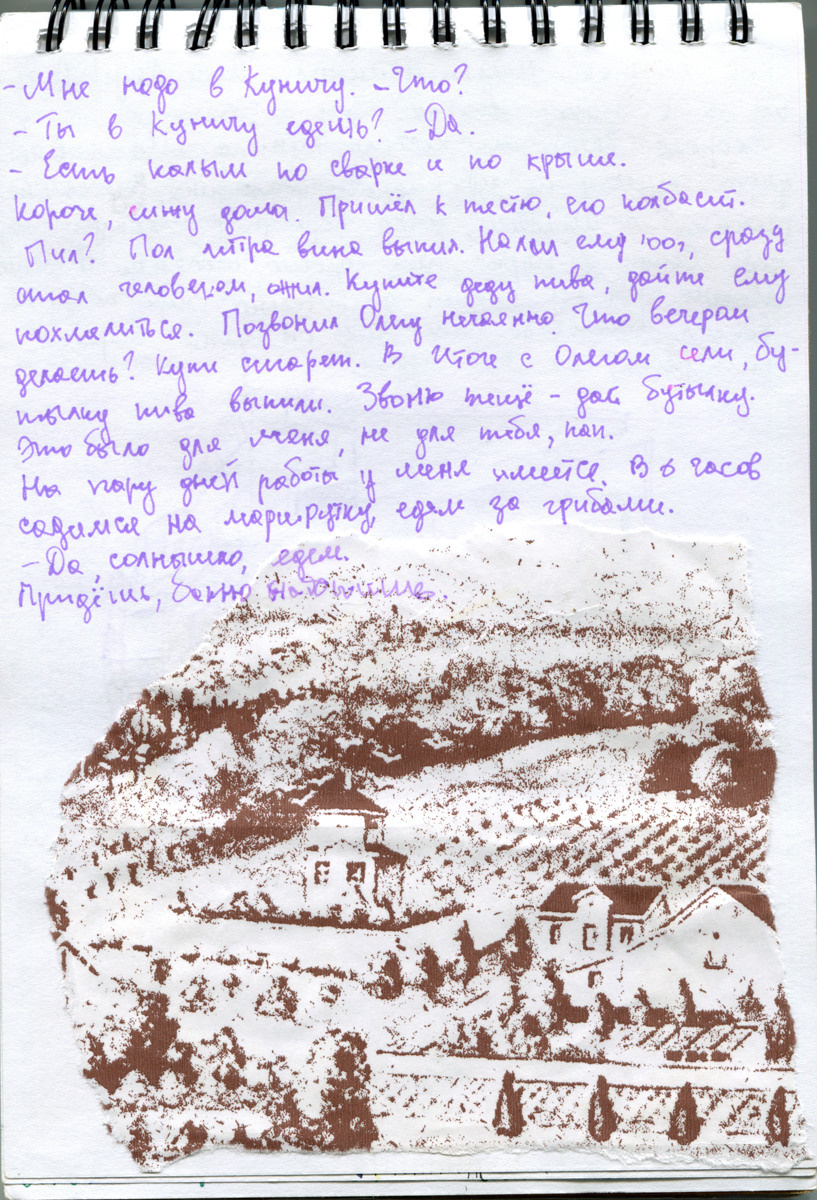 - Мне надо в Куничу. - Что?
- Ты в Куничу едешь? - Да.
- Есть калым по сварке и по крыше.
Короче, сижу дома. Пришёл к тестю, его колбасит.
Пил? Пол литра вина выпил. Налил ему 100г, сразу
стал человеком, ожил. Купите деду пива, дайте ему
похмелиться. Позвонил Олегу нечаянно. Что вечером
делаешь? Купи сигарет. В итоге с Олегом сели, бу-
тылку пива выпили. Звоню тёще - дай бутылку.
Это было для меня, не для тебя, пап.
На пару дней работы у меня имеется. В 6 часов
садимся на маршрутку, едем за грибами.
- Да, солнышко, едем.
Придёшь, баньку